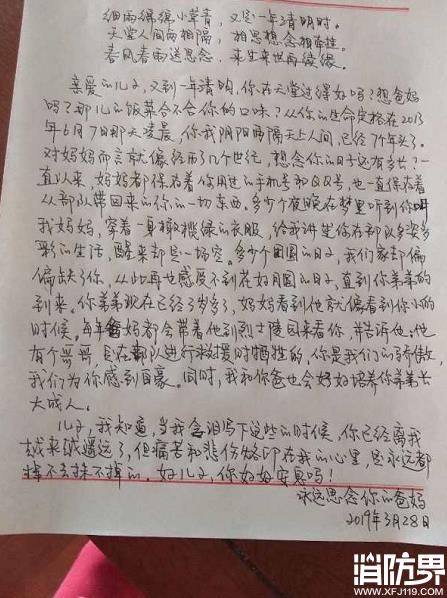 细雨绵绵小草青，又是一年清明时。
天堂人间两相隔，相思想念相牵挂。
春风春雨送思念，来生来世再续缘。
亲爱的儿子，又到一年清明，你在天堂过得好吗？想爸妈
吗？那儿的饭菜合不合你的口味？从你的生命定格在2013
年6月7日那天凌晨，你我阴阳两隔天上人间，已经7个年头了。
对妈妈而言就像经历了几个世纪，想念你的日子还有多长？一
直以来，妈妈都保存着你用过的手机号和QQ号，也一直保存着
从部队带回来的你的一切东西。多少个夜晚在梦里听到你叫
我妈妈，穿着一身橄榄绿的衣服，给我讲你在部队多姿多
彩的生活，醒来却是一场空。多少个团圆的日子，我们家却偏
偏缺了你，从此再也感受不到花好月圆的日子，直到你弟弟的
到来。你弟弟现在已经了岁多了，妈妈看到他就像看到你小的
时候。每年爸妈都会带着他到烈士陵园来看你，并告诉他：他
有个哥哥，是在部队进行救援时牺牲的，你是我们的骄傲，
我们为你感到自豪。同时，我和你爸也会好好培养你弟弟长
大成人。
儿子，我知道，当我含泪写下这些的时候，你已经离我
越来越遥远了，但痛苦和悲伤烙印在我的心里，是永远都
挥不去抹不掉的。好儿子，你好好安息吗！
永远思念你的爸妈
2019年3月28日
消防界
WWW.XFJ119.COM